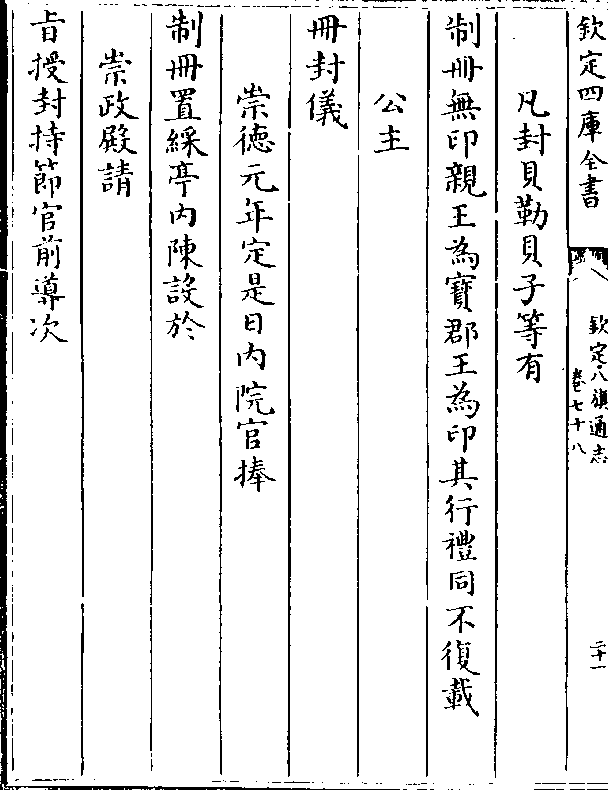 欽定四庫全書
欽定八旗通志
卷七十八
二十一
凡封貝勒貝子等有
制冊無印親王為寶郡王為印其行禮同不復載
公主
冊封儀
崇德元年定是日內院官捧
制冊置綵亭內陳設於
崇政殿請
旨授封持節官前導次